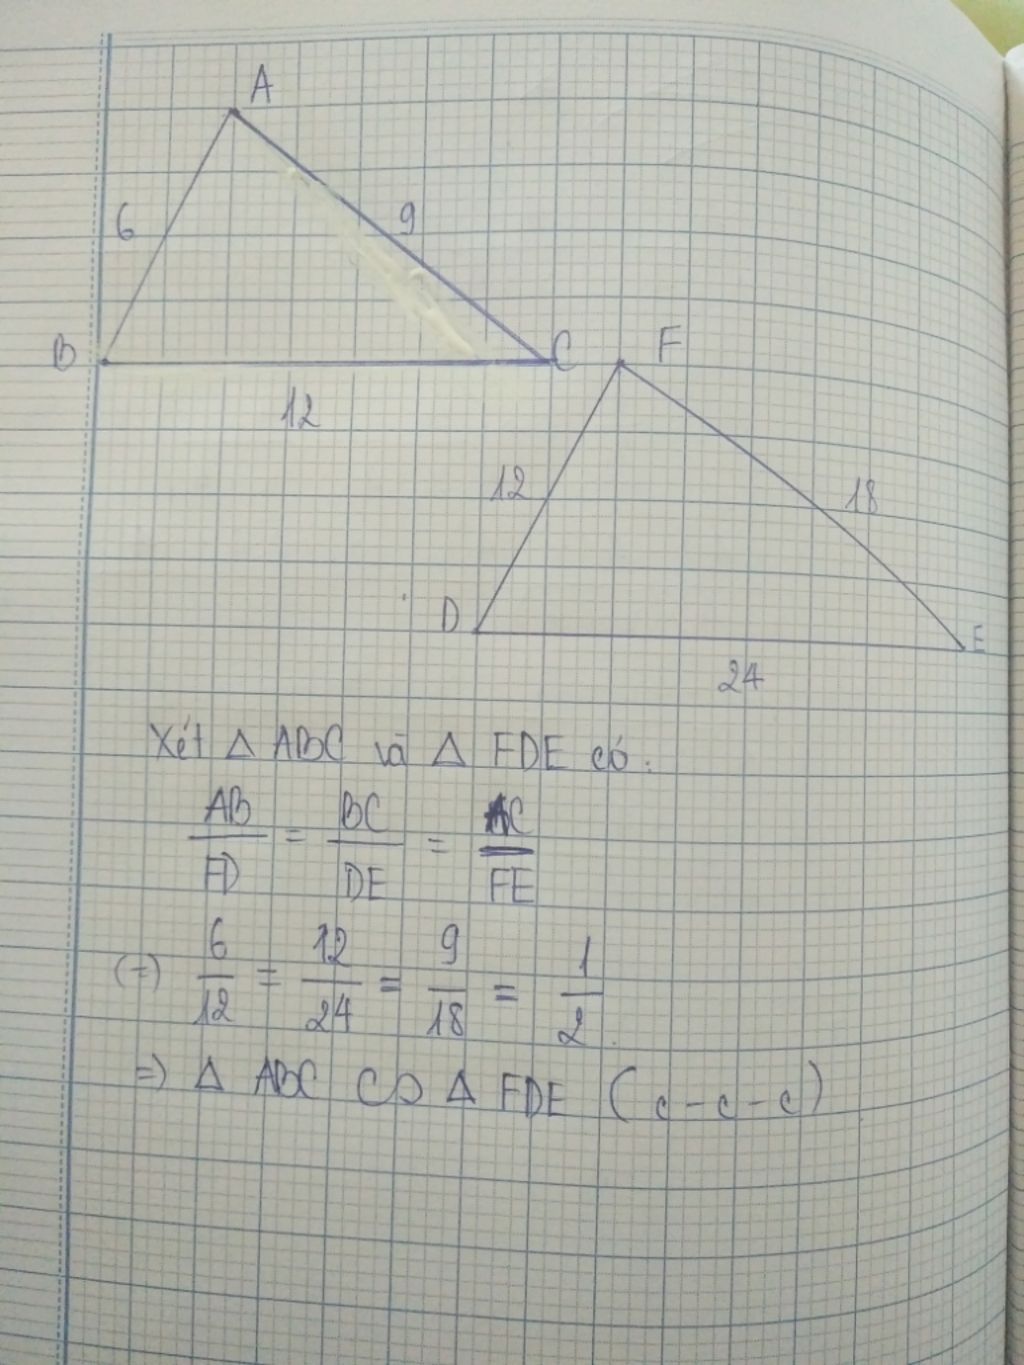 A
6
9
B
C
F
12
12
18
D
E
24
Xét Δ ABC và Δ FDE có:
AB/FD = BC/DE = AC/FE
(=) 6/12 = 12/24 = 9/18 = 1/2.
=) Δ ABC ∽ Δ FDE (c-c-c)